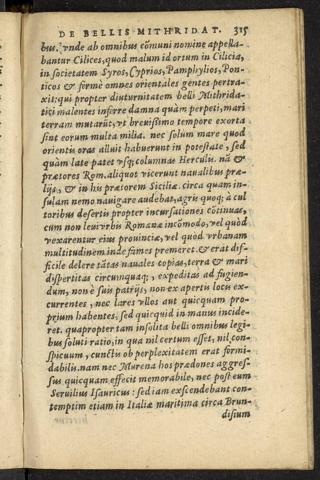 DE BELLIS MITHRIDAT. 315
bus. vnde ab omnibus cōmuni nomine appella-
bantur Cilices, quod malum id ortum in Cilicia,
in societatem Syros, Cyprios, Pamphylios, Pon-
ticos & fermè omnes orientales gentes pertra-
xit: qui propter diuturnitatem belli Mithrida-
tici malentes inferre damna quàm perpeti, mari
terram mutarūt, vt breuissimo tempore exorta
sint eorum multa milia. nec solum mare quod
orientis oras alluit habuerunt in potestate, sed
quàm latè patet vsq; columnas Herculis. nā &
prætores Rom. aliquot vicerunt naualibus præ-
lijs, & in his prætorem Siciliæ. circa quam in-
sulam nemo nauigare audebat, agris quoq; à cul
toribus desertis propter incursationes cōtinuas,
cum non leui vrbis Romanæ incōmodo, vel quòd
vexarentur eius prouinciæ, vel quòd vrbanam
multitudinem inde fames premeret. & erat dif-
ficile delere tātas nauales copias, terra & mari
dispertitas circumquaq; , expeditas ad fugien-
dum, non è suis patrijs, non ex apertis locis ex-
currentes, nec lares vllos aut quicquam pro-
prium habentes, sed quicquid in manus incide-
ret. quapropter tam insolita belli omnibus legi-
bus soluti ratio, in qua nil certum esset, nil con-
spicuum, cunctis ob perplexitatem erat formi-
dabilis. nam nec Murena hos prædones aggres-
sus quicquam effecit memorabile, nec post eum
Seruilius Isauricus: sed iam exscendebant con-
temptim etiam in Italiæ maritima circa Brun-
disium